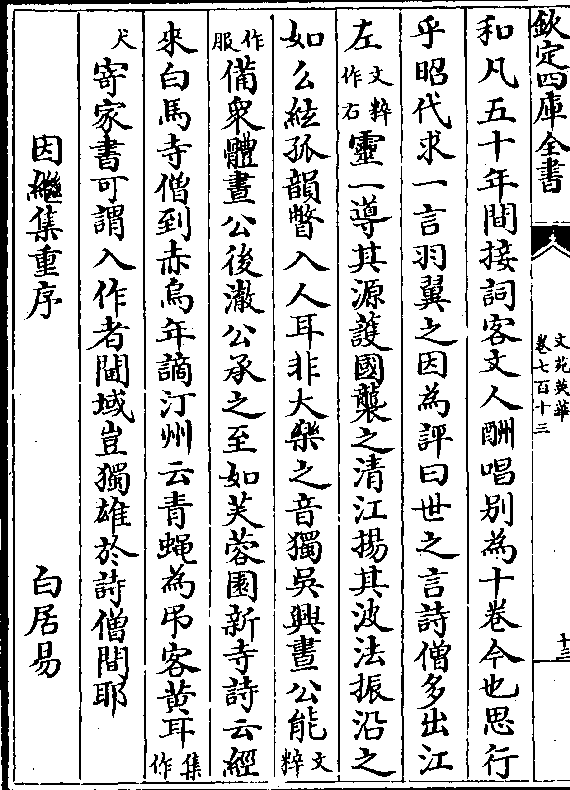 欽定四庫全書
文苑英華
卷七百十三
十三
和凡五十年間接詞客文人酬唱别為十卷今也思行
乎昭代求一言羽翼之因為評曰世之言詩僧多出江
左文粹作右靈一導其源護國襲之清江揚其波法振沿之
如么絃孤韻瞥入人耳非大樂之音獨吳興晝公能文粹
作服備衆體晝公後澈公承之至如芙蓉園新寺詩云經
來白馬寺僧到赤烏年謫汀州云青蝇為吊客黄耳集作
犬寄家書可謂入作者閫域豈獨雄於詩僧間耶
因繼集重序 白居易